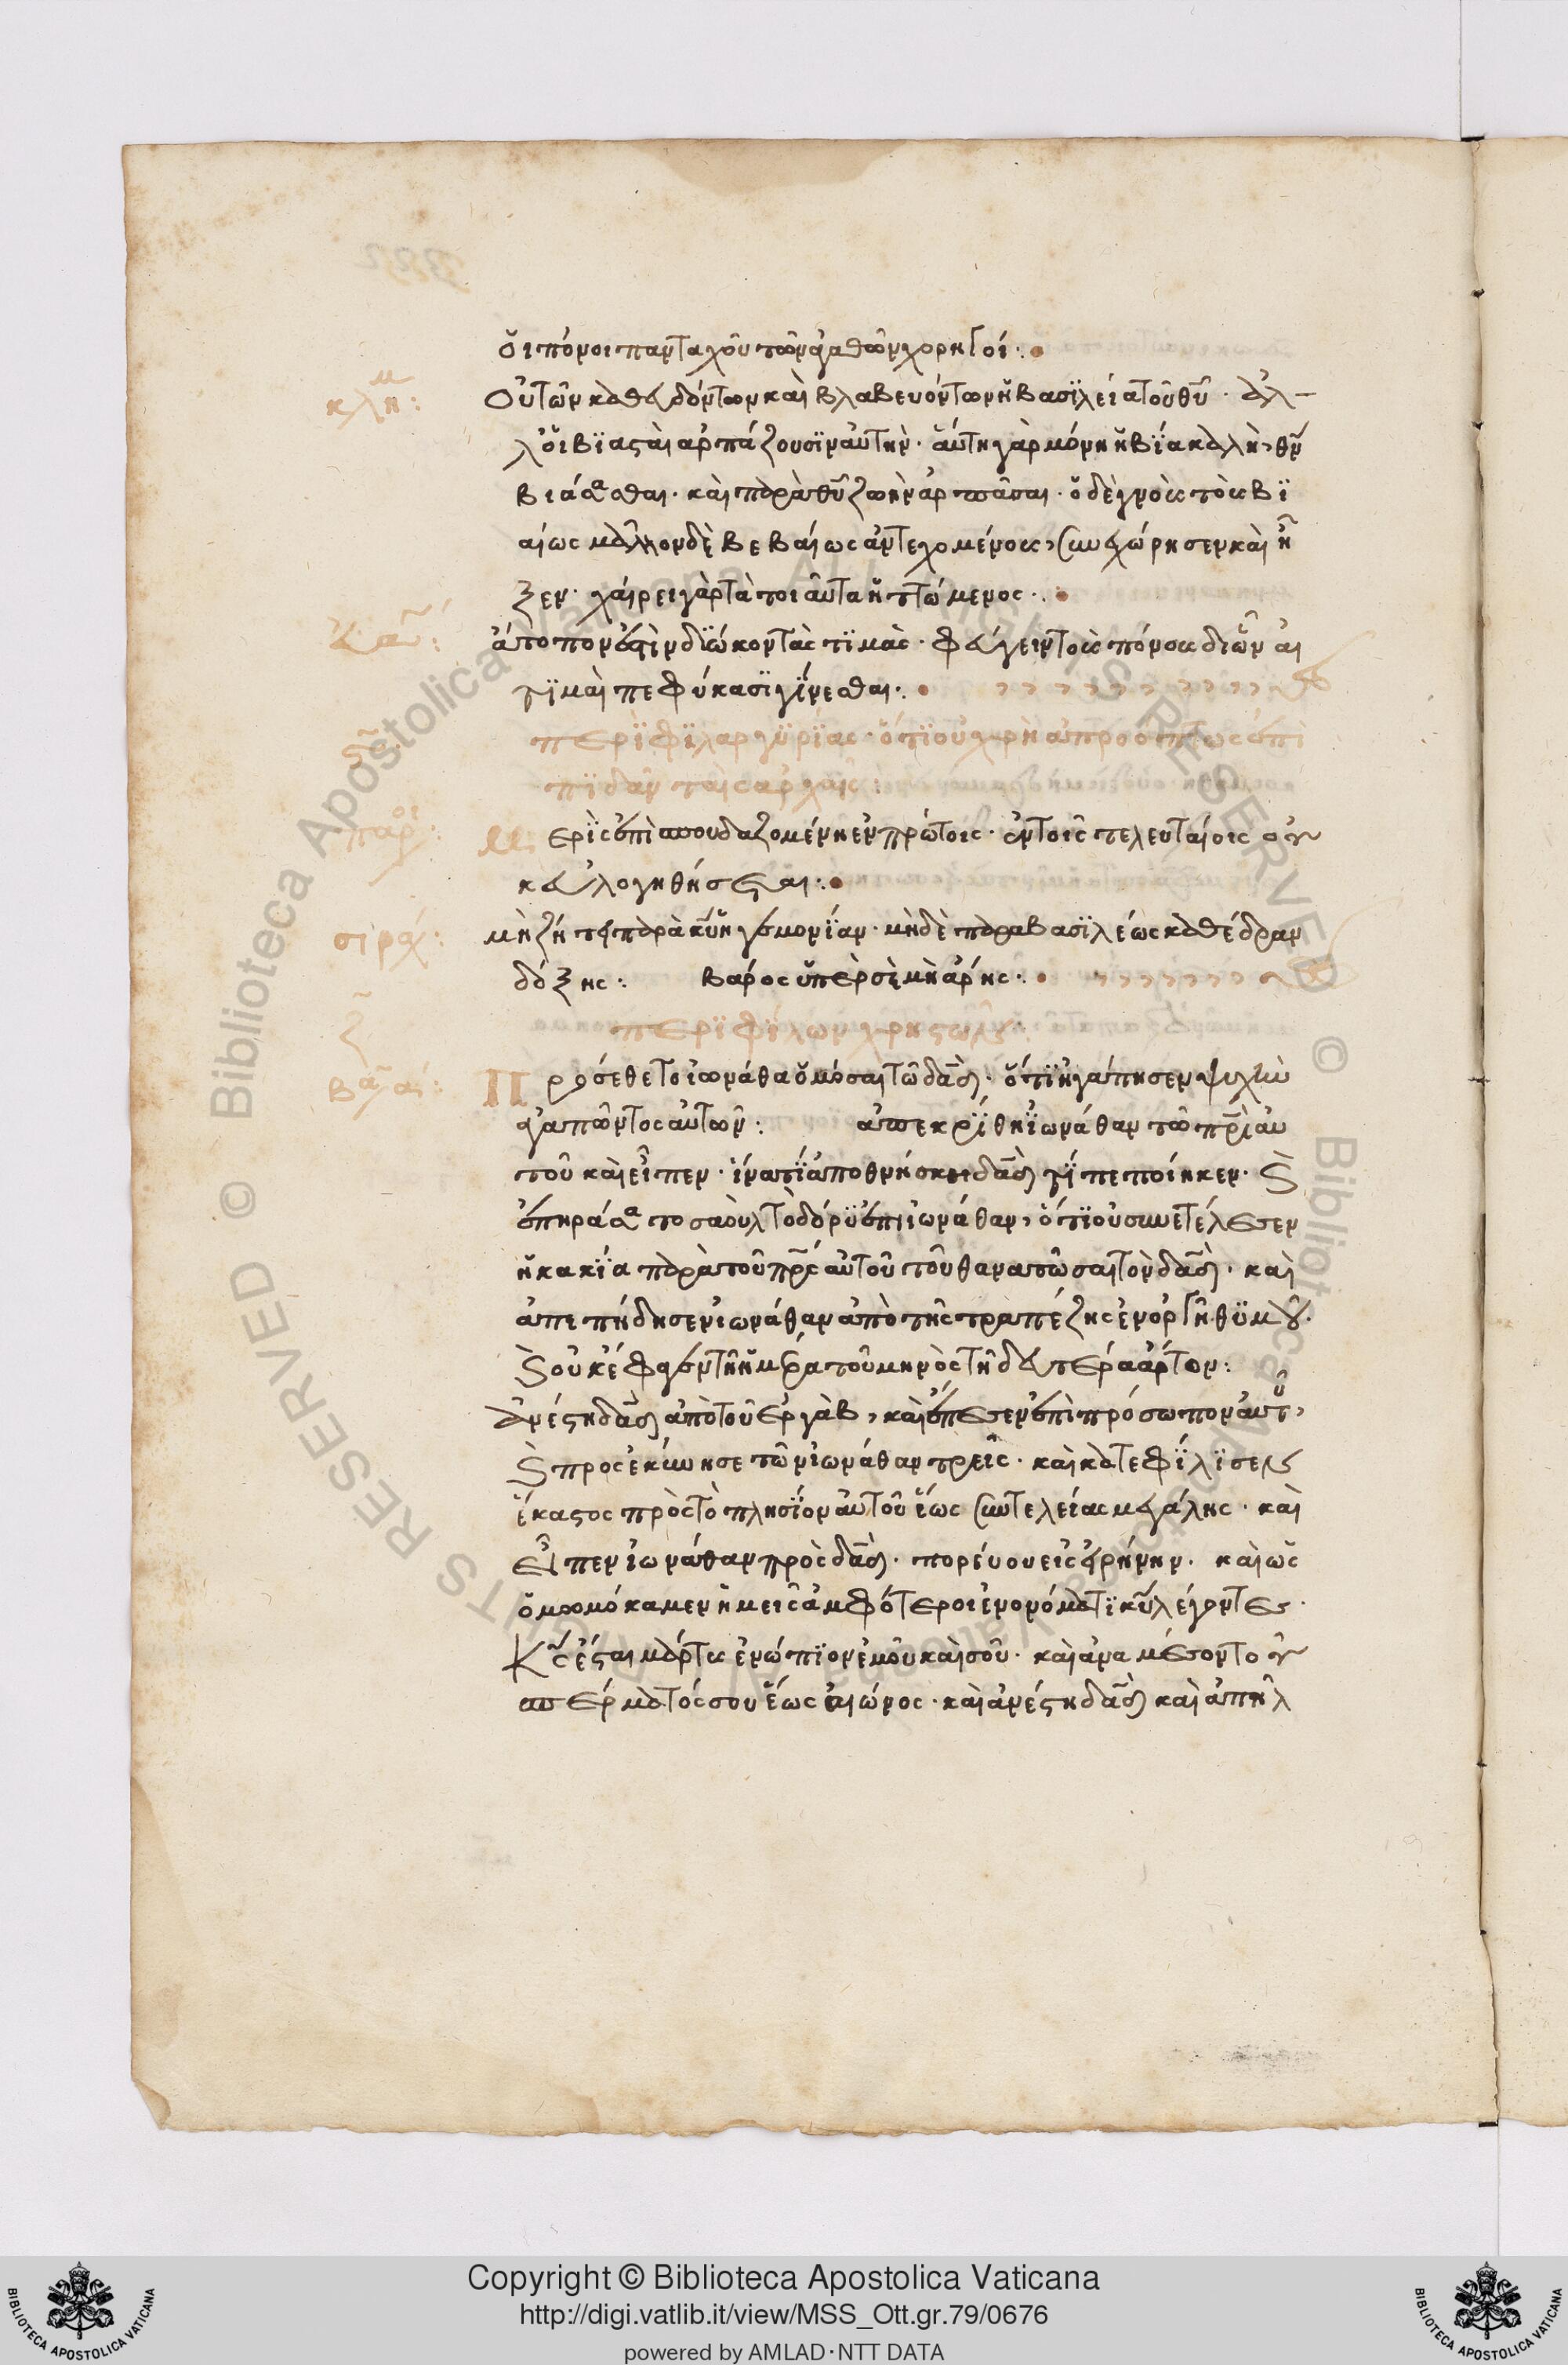 οἱ πόνοι πανταχοῦ τῶν ἀγαθῶν χορηγοί:
κλημ: Οὐ τῶν καθευδόντων καὶ βλακευόντων ἡ βασιλεία τοῦ θυ. ἀλ-
λ' οἱ βιασταὶ ἁρπάζουσιν αὐτήν. αὕτη γὰρ μόνη ἡ βία καλή, θν
βιάσασθαι. καὶ παρὰ θυ ζωὴν ἁρπάσαι. ὁ δὲ γνοὺς τοὺς βι
αίως μᾶλλον δὲ βεβαίως ἀντεχομένους, συνεχώρησεν καὶ εἶ
ξεν. χαίρει γὰρ τὰ τοιαῦτα ἡττώμενος:
ἄτοπόν ἐστιν διώκοντας τιμὰς. φεύγειν τοὺς πόνους δι' ὧν αἱ
τιμαὶ πεφύκασι γίνεσθαι:
περὶ φιλαργυρίας. ὅτι οὐ χρὴ ἀπροόπτως ἐπι
πιδᾶν ταῖς ἀρχαῖς:
παροι: μερὶς ἐπισπουδαζομένη ἐν πρώτοις. ἐν τοῖς τελευταίοις οὐ
κ εὐλογηθήσεται:
σιράχ: μὴ ζήτει παρὰ κυ ἡγεμονίαν. μηδὲ παρὰ βασιλέως καθέδραν
δόξης: βάρος ὑπὲρ σὲ μὴ ἄρης:
περὶ φίλων χρηστῶν:
βασιλει: Προσέθετο ἰωνάθα ὀμόσαι τῷ δαδ. ὅτι ἠγάπησεν ψυχὴν
ἀγαπῶντος αὐτόν: ἀπεκρίθη ἰωνάθαν τῷ πρι αὐ
τοῦ καὶ εἶπεν. ἱνατί ἀποθνήσκει δαδ τί πεποίηκεν. καὶ
ἐπήρατο σαοὺλ τὸ δόρυ ἐπὶ ἰωνάθαν, ὅτι οὐ συνετέλεσεν
ἡ κακία παρὰ τοῦ πρς αὐτοῦ τοῦ θανατῶσαι τὸν δαδ. καὶ
ἀπεπήδησεν ἰωνάθαν ἀπὸ τῆς τραπέζης ἐν ὀργῇ θυμοῦ.
καὶ οὐκ ἔφαγεν τῇ ἡμέρα τοῦ μηνὸς τῇ δευτέρα ἄρτον:
ἀνέστη δαδ ἀπὸ τοῦ ἐργὰβ, καὶ ἔπεσεν ἐπὶ πρόσωπον αὐτοῦ,
καὶ προσεκύνησε τῶν ἰωνάθαν τρεῖς. καὶ κατεφίλισεν
ἕκαστος πρὸς τὸ πλησίον αὐτοῦ ἕως συντελείας μεγάλης. καὶ
εἶπεν ἰωνάθαν πρὸς δαδ. πορεύου εἰς εἰρήνην. καὶ ὡς
ὀμωμόκαμεν ἡμεῖς ἀμφότεροι ἐν ὀνόματι κυ λέγοντες.
Κς ἔσται μάρτυς ἐνώπιον ἐμοῦ καὶ σοῦ. καὶ ἀνα μέσον τοῦ
σπέρματός σου ἕως αἰῶνος. καὶ ἀνέστη δαδ καὶ ἀπῆλ
Copyright © Biblioteca Apostolica Vaticana
http://digi.vatlib.it/view/MSS_Ott.gr.79/0676
powered by AMLAD·NTT DATA